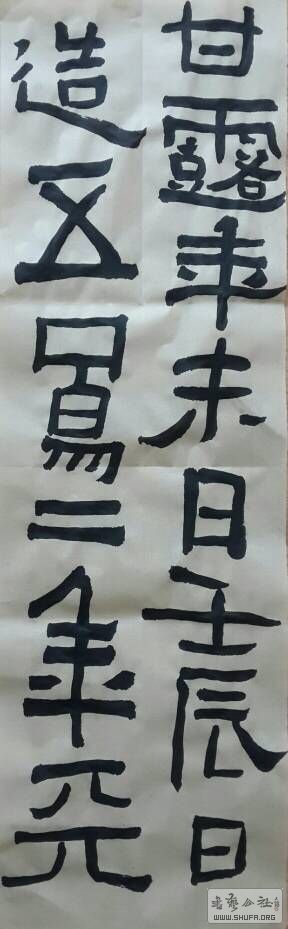 甘露年未日壬辰日
造五鳳二年
書藝公社
WWW.SHUFA.ORG